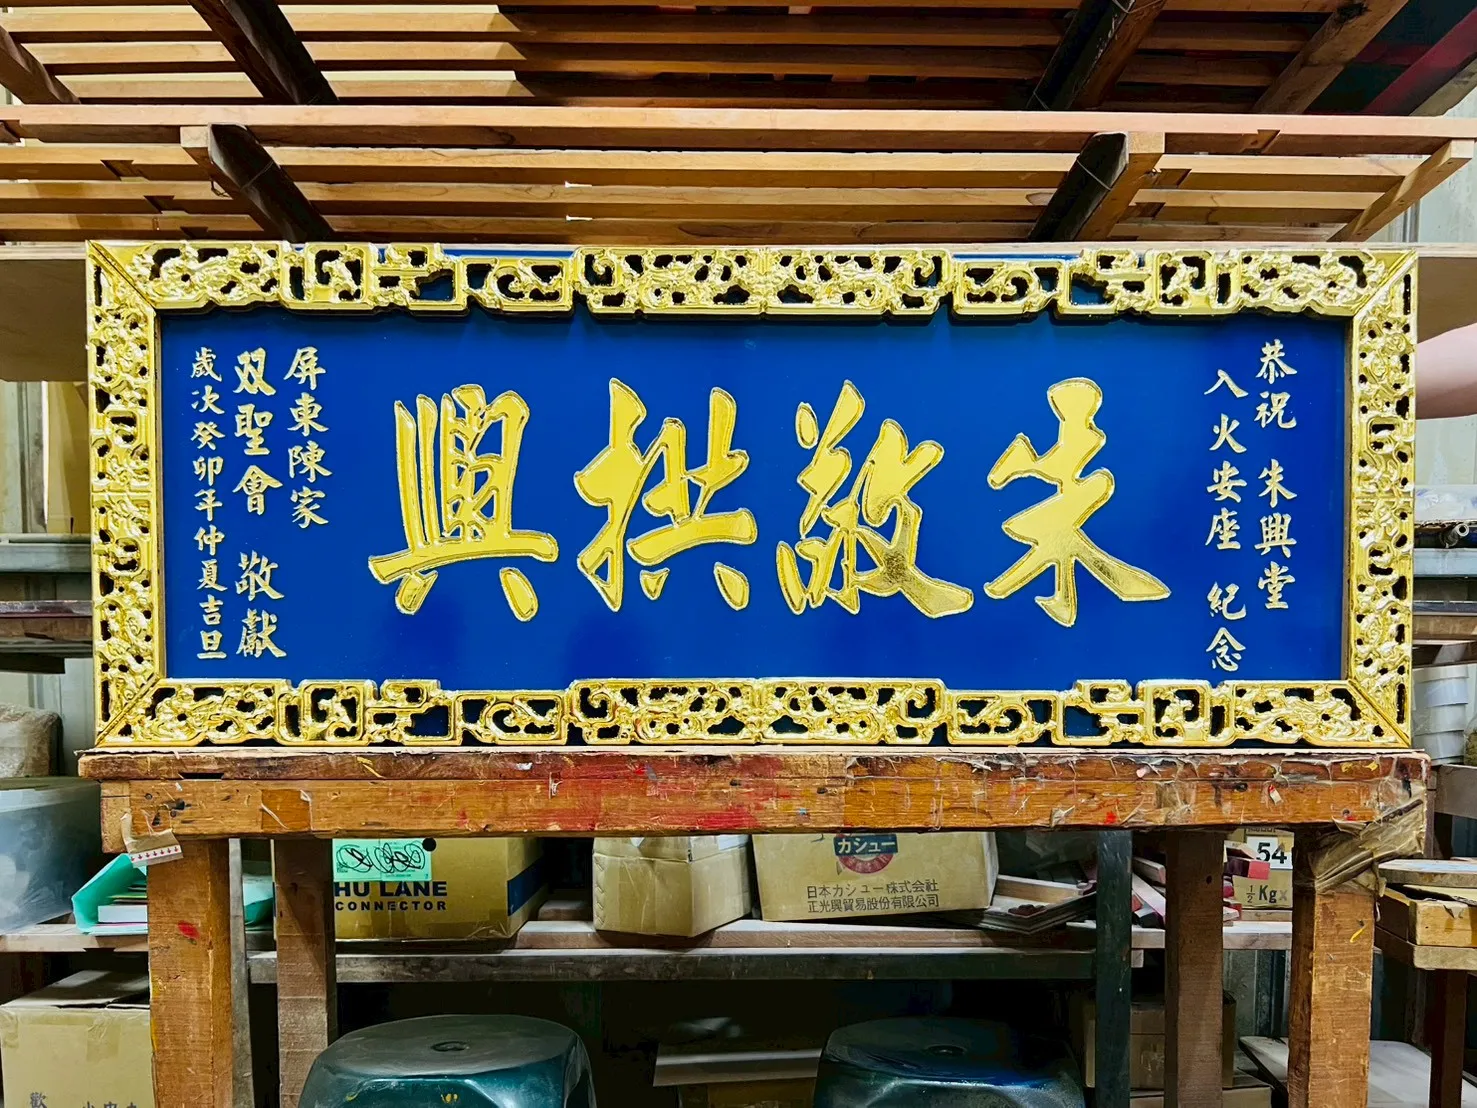 恭祝 朱興堂
入火安座 紀念
朱敬拱興
屏東陳家
双聖會 敬獻
歲次癸卯年仲夏吉旦
HU LANE
CONNECTOR
カシュー
日本カシュー株式会社
正光興貿易股份有限公司
54
½ Kg
歡